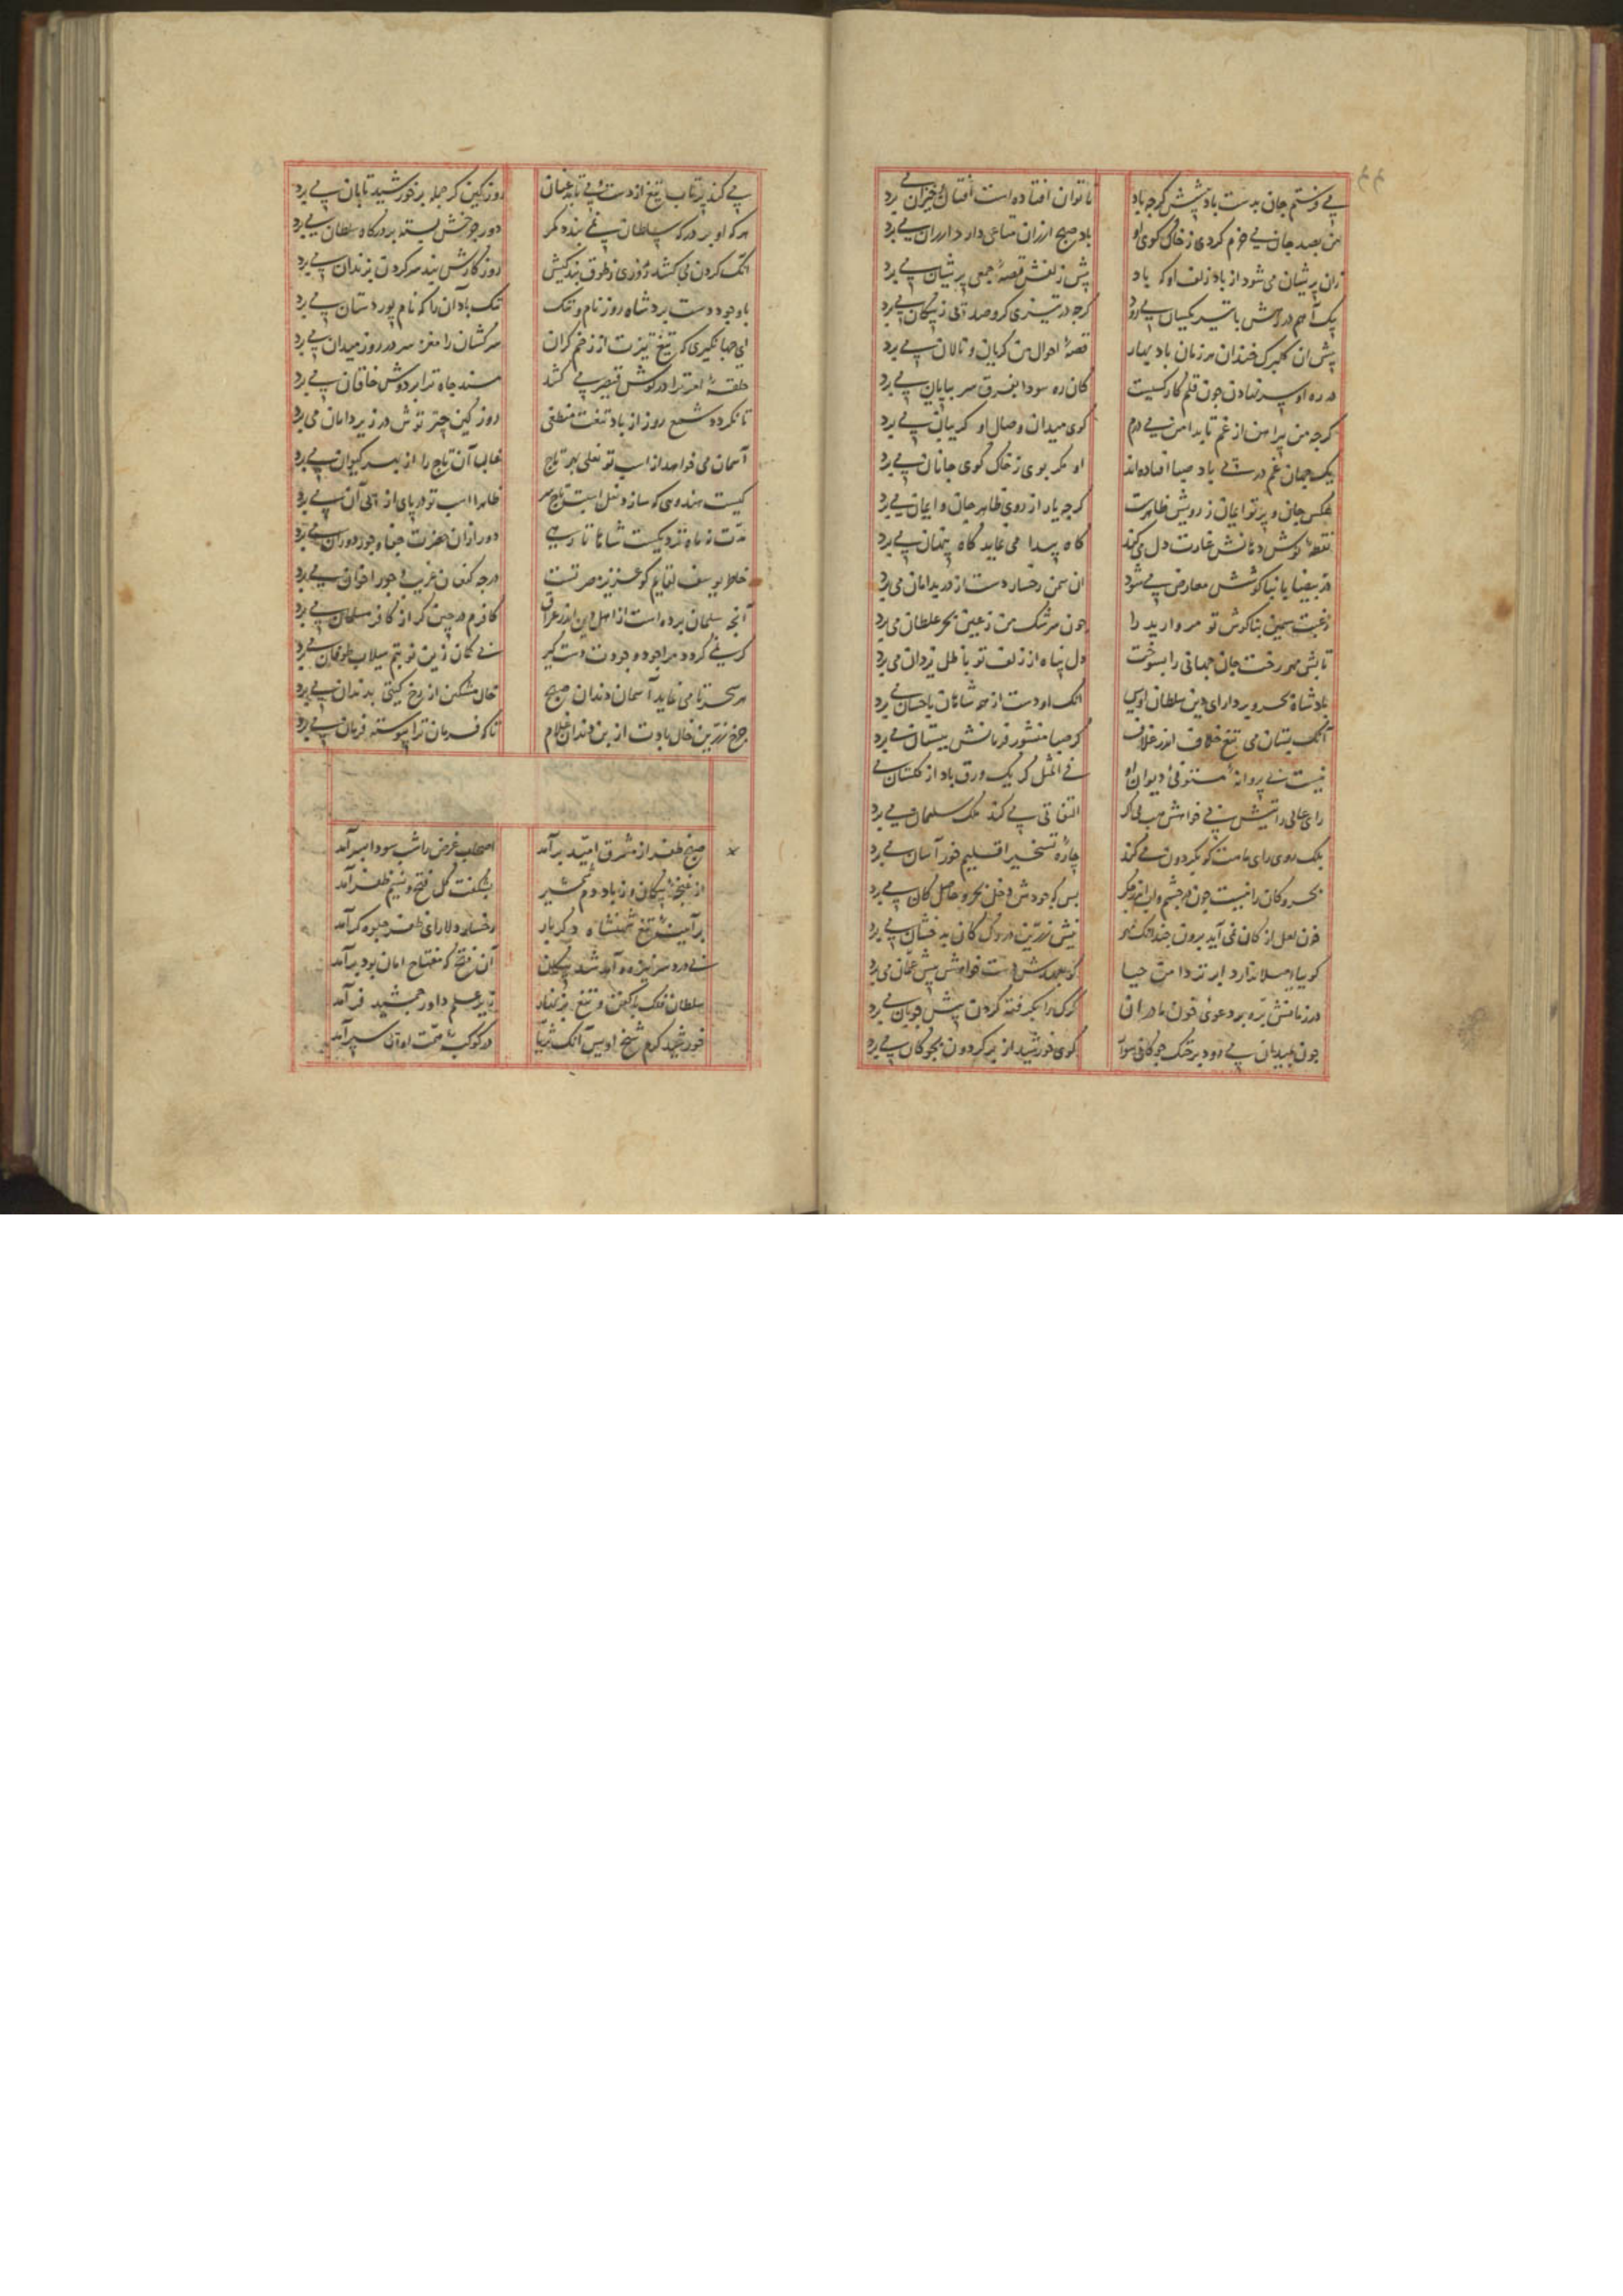 می فرستم جان بدست باد پیشش گرچه باد
ناتوان افتاده است افتان و خیزان می برد
من بصد جان می خرم گردی ز خاک کوی او
باد صبح ارزان متاعی دارد ارزان می برد
زان پریشان می شود از باد زلف او که باد
پیش زلفش قصهٔ جمعی پریشان می برد
پیک آهم در رهش با تیر یکسان می رود
گرچه در تیزی گرو صد پی ز پیکان می برد
پیش آن گلبرگ خندان هر زمان باد بهار
قصهٔ احوال من گریان و نالان می برد
در ره او سر نهادن چون قلم کار کسیست
کان ره سودا بفرق سر بپایان می برد
گرچه من پیراهن از غم تا بدامن می درم
گوی میدان وصال او گریبان می برد
یک جهان غم در پی باد صبا افتاده اند
او مگر بوی ز خاک کوی جانان می برد
عکس جان و پرتو ایمان ز رویش ظاهرست
گرچه یار از روی ظاهر جان و ایمان می برد
نقطهٔ نوش دهانش غارت دل می کند
گاه پیدا می نماید گاه پنهان می برد
در بیضا با بناگوشش معارض می شود
آن سمن رخسار دست از در بدامان می برد
رغبت سیمین بناگوش تو مروارید را
چون سرشک من ز عین بحر غلطان می برد
تابش مهر رخت جان جهانی را بسوخت
دل پناه از زلف تو با ظل یزدان می برد
پادشاه بحر و بر دارای دین سلطان اویس
آنک او دست از همه شاهان باحسان می برد
آنک بستان می تیغ خلاف اندر غلاف
گر صبا منشور فرمانش ببستان می برد
نیست بی پروانهٔ مستوفی دیوان او
فی المثل گر یک ورق باد از گلستان می برد
رای عالی رایتش بی خواهش هب لی اگر
التفاتی می کند ملک سلیمان می برد
یک روی رای ماهت کو بگردون می کند
چارهٔ تسخیر اقلیم خور آسان می برد
بحر و کان را نیست چون در چشم و لب اندر جگر
بس که جودش دخل بحر و حاصل کان می برد
خون لعل از کان نمی آید برون چندانک هور
نیش زرین در رگ کان بدخشان می برد
گوییا اصلا ندارد ابر تردامن حیا
کو بعهدش دست خواهش پیش عمان می برد
در زمانش بره بر دعوی خون مادران
گرگ را بگرفته گردن پیش چوپان می برد
چون بمیدان می رود بر خنگ چوگانی سوار
گوی خورشید از بر گردون بچوگان می برد
می کند پرتاب تیغ از دست می تابد عنان
روز کین گر حمله بر خورشید تابان می برد
هر که او بر درگه سلطان نمی بندد کمر
دور جورش بسته بر درگاه سلطان می برد
آنک گردن می کشد روزی ز طوق بندگیش
روزگارش بند بر گردن بزندان می برد
باوجود دست برد شاه روز نام و ننگ
ننگ باد آن را که نام پور دستان می برد
ای جهانگیری که تیغ تیزت از زخم گران
سرکشان را مغز سر در روز میدان می برد
حلقهٔ امر ترا در گوش قیصر می کشد
مسند جاه ترا بر دوش خاقان می برد
تا نگردد شمع روز از باد تیغت منطفی
روز کین چتر توش در زیر دامان می برد
آسمان می خواهد از اسب تو نعلی بهر تاج
غالبا آن تاج را از بهر کیوان می برد
کیست هندوی که سازد نعل اسبت تاج سر
ظاهرا اسب تو در پای از پی آن می برد
مدت نه ماه نزدیکست شاها تا رهی
دور ازان حضرت جفا و جور دوران می برد
حال یوسف
هرچه کنعان غریب و جور اخوان می برد
آنچه سلمان برده است از اهل دین اندر عراق
کافرم در چین گر از کافر مسلمان می برد
گر نمی گردد مرا جود وجودت دستگیر
بی گمان زین نوبتم سیلاب طوفان می برد
هر سحر تا می نماید آسمان دندان صبح
خال مشکین از رخ گیتی بدندان می برد
چرخ زرین خال بادت از بن دندان غلام
تا که فرمان ترا پیوسته فرمان می برد
صبح ظفر از مشرق امید برآمد
اصحاب غرض را شب سودا بسر آمد
از غنچهٔ پیکان و ز باد دم شمشیر
بشکفت گل فتح و نسیم ظفر آمد
بر آینهٔ تیغ شهنشاه دگربار
رخسار دلارای ظفر جلوه گر آمد
در سر نیزه
آن فتح که مفتاح امان بود برآمد
سلطان فلک با کفن و تیغ بزنهار
در زیر علم داور جمشید فر آمد
خورشید کرم شیخ اویس آنک ثریا
در کوکبهٔ همت او پی سپر آمد